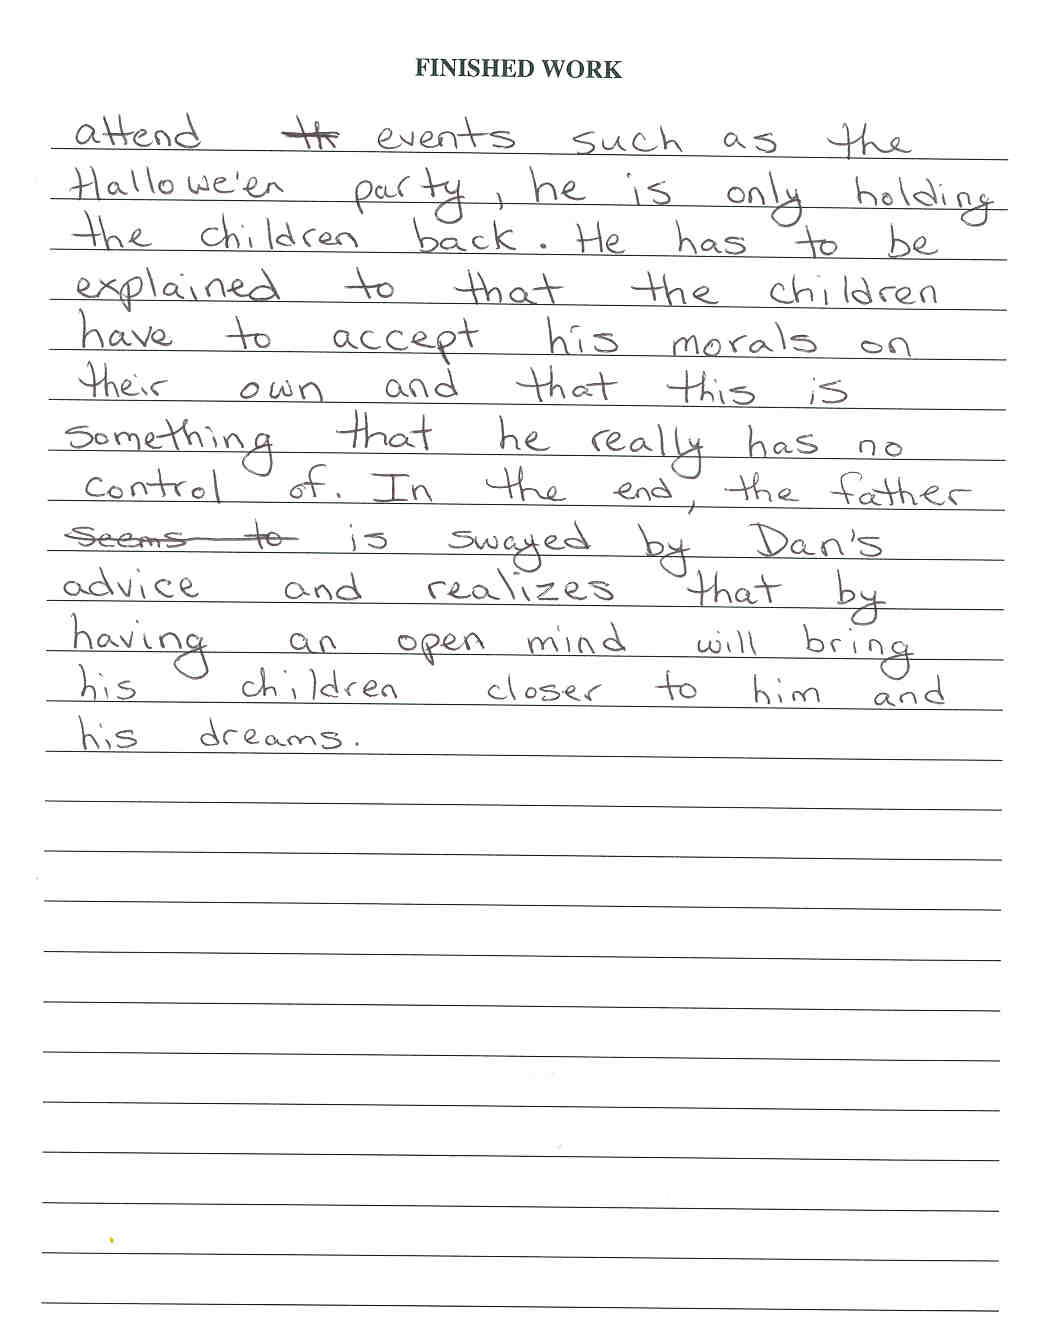 FINISHED WORK
attend events such as the
Hallowe'en party, he is only holding
the children back. He has to be
explained to that the children
have to accept his morals on
their own and that this is
something that he really has no
control of. In the end, the father
seems to is swayed by Dan's
advice and realizes that by
having an open mind will bring
his children closer to him and
his dreams.